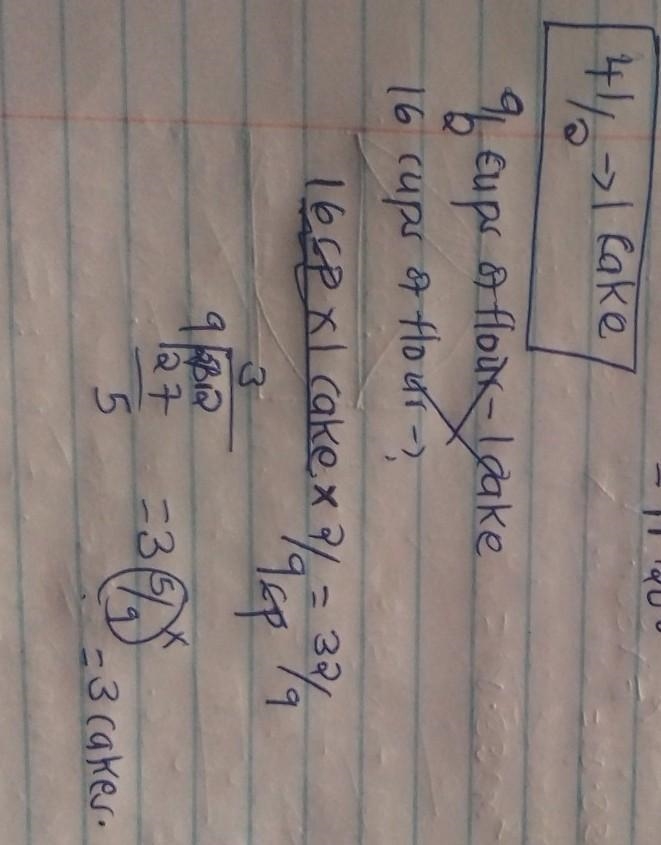 4 1/2 → 1 Cake
9/2 cups of flour - 1 cake
16 cups of flour → ?
16 cp x 1 cake x 2/9 cp = 32/9
3
9 32
27
5
= 3 5/9 x
= 3 cakes.